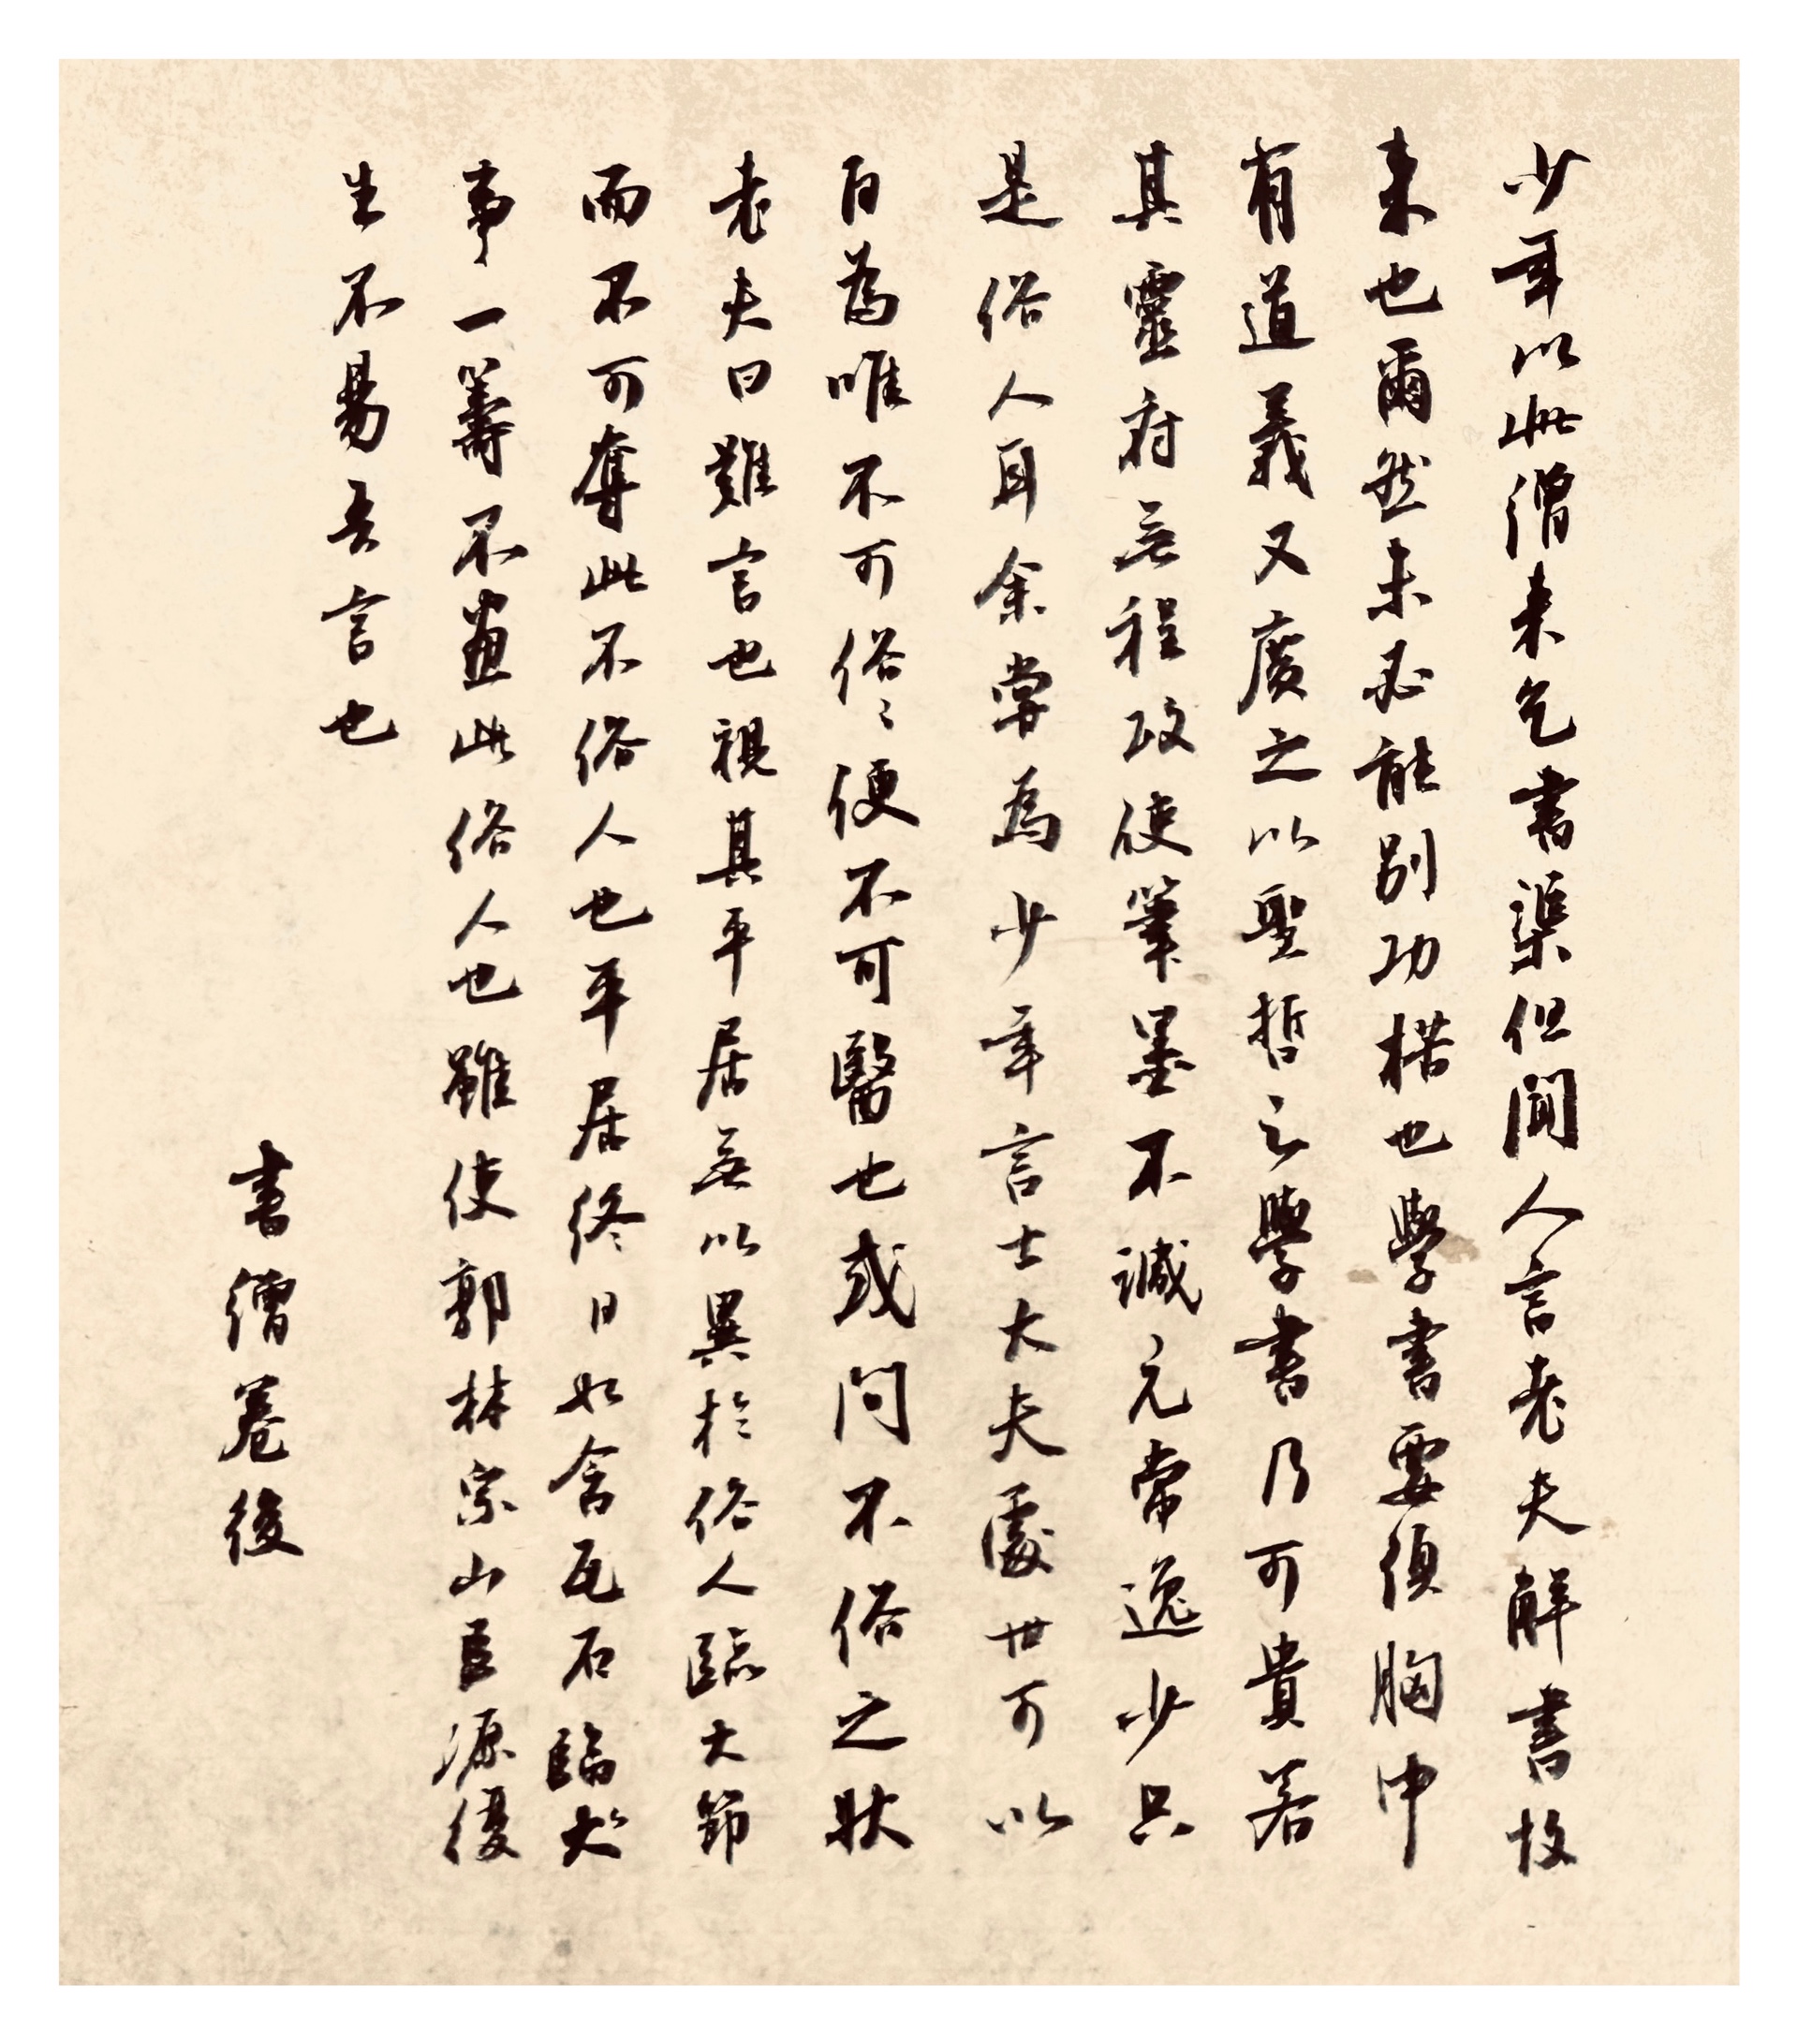 少年以此繒来乞書渠但聞人言老夫解書故
来也爾然未必能別功楛也學書要須胸中
有道義又廣之以聖哲之學書乃可貴若
其靈府無程政使筆墨不減元常逸少只
是俗人耳余嘗為少年言士大夫處世可以
百為唯不可俗〻便不可醫也或問不俗之狀
老夫曰難言也視其平居無以異於俗人臨大節
而不可奪此不俗人也平居終日如含瓦石臨大
事一籌不畫此俗人也雖使郭林宗山巨源復
生不易吾言也
書繒卷後